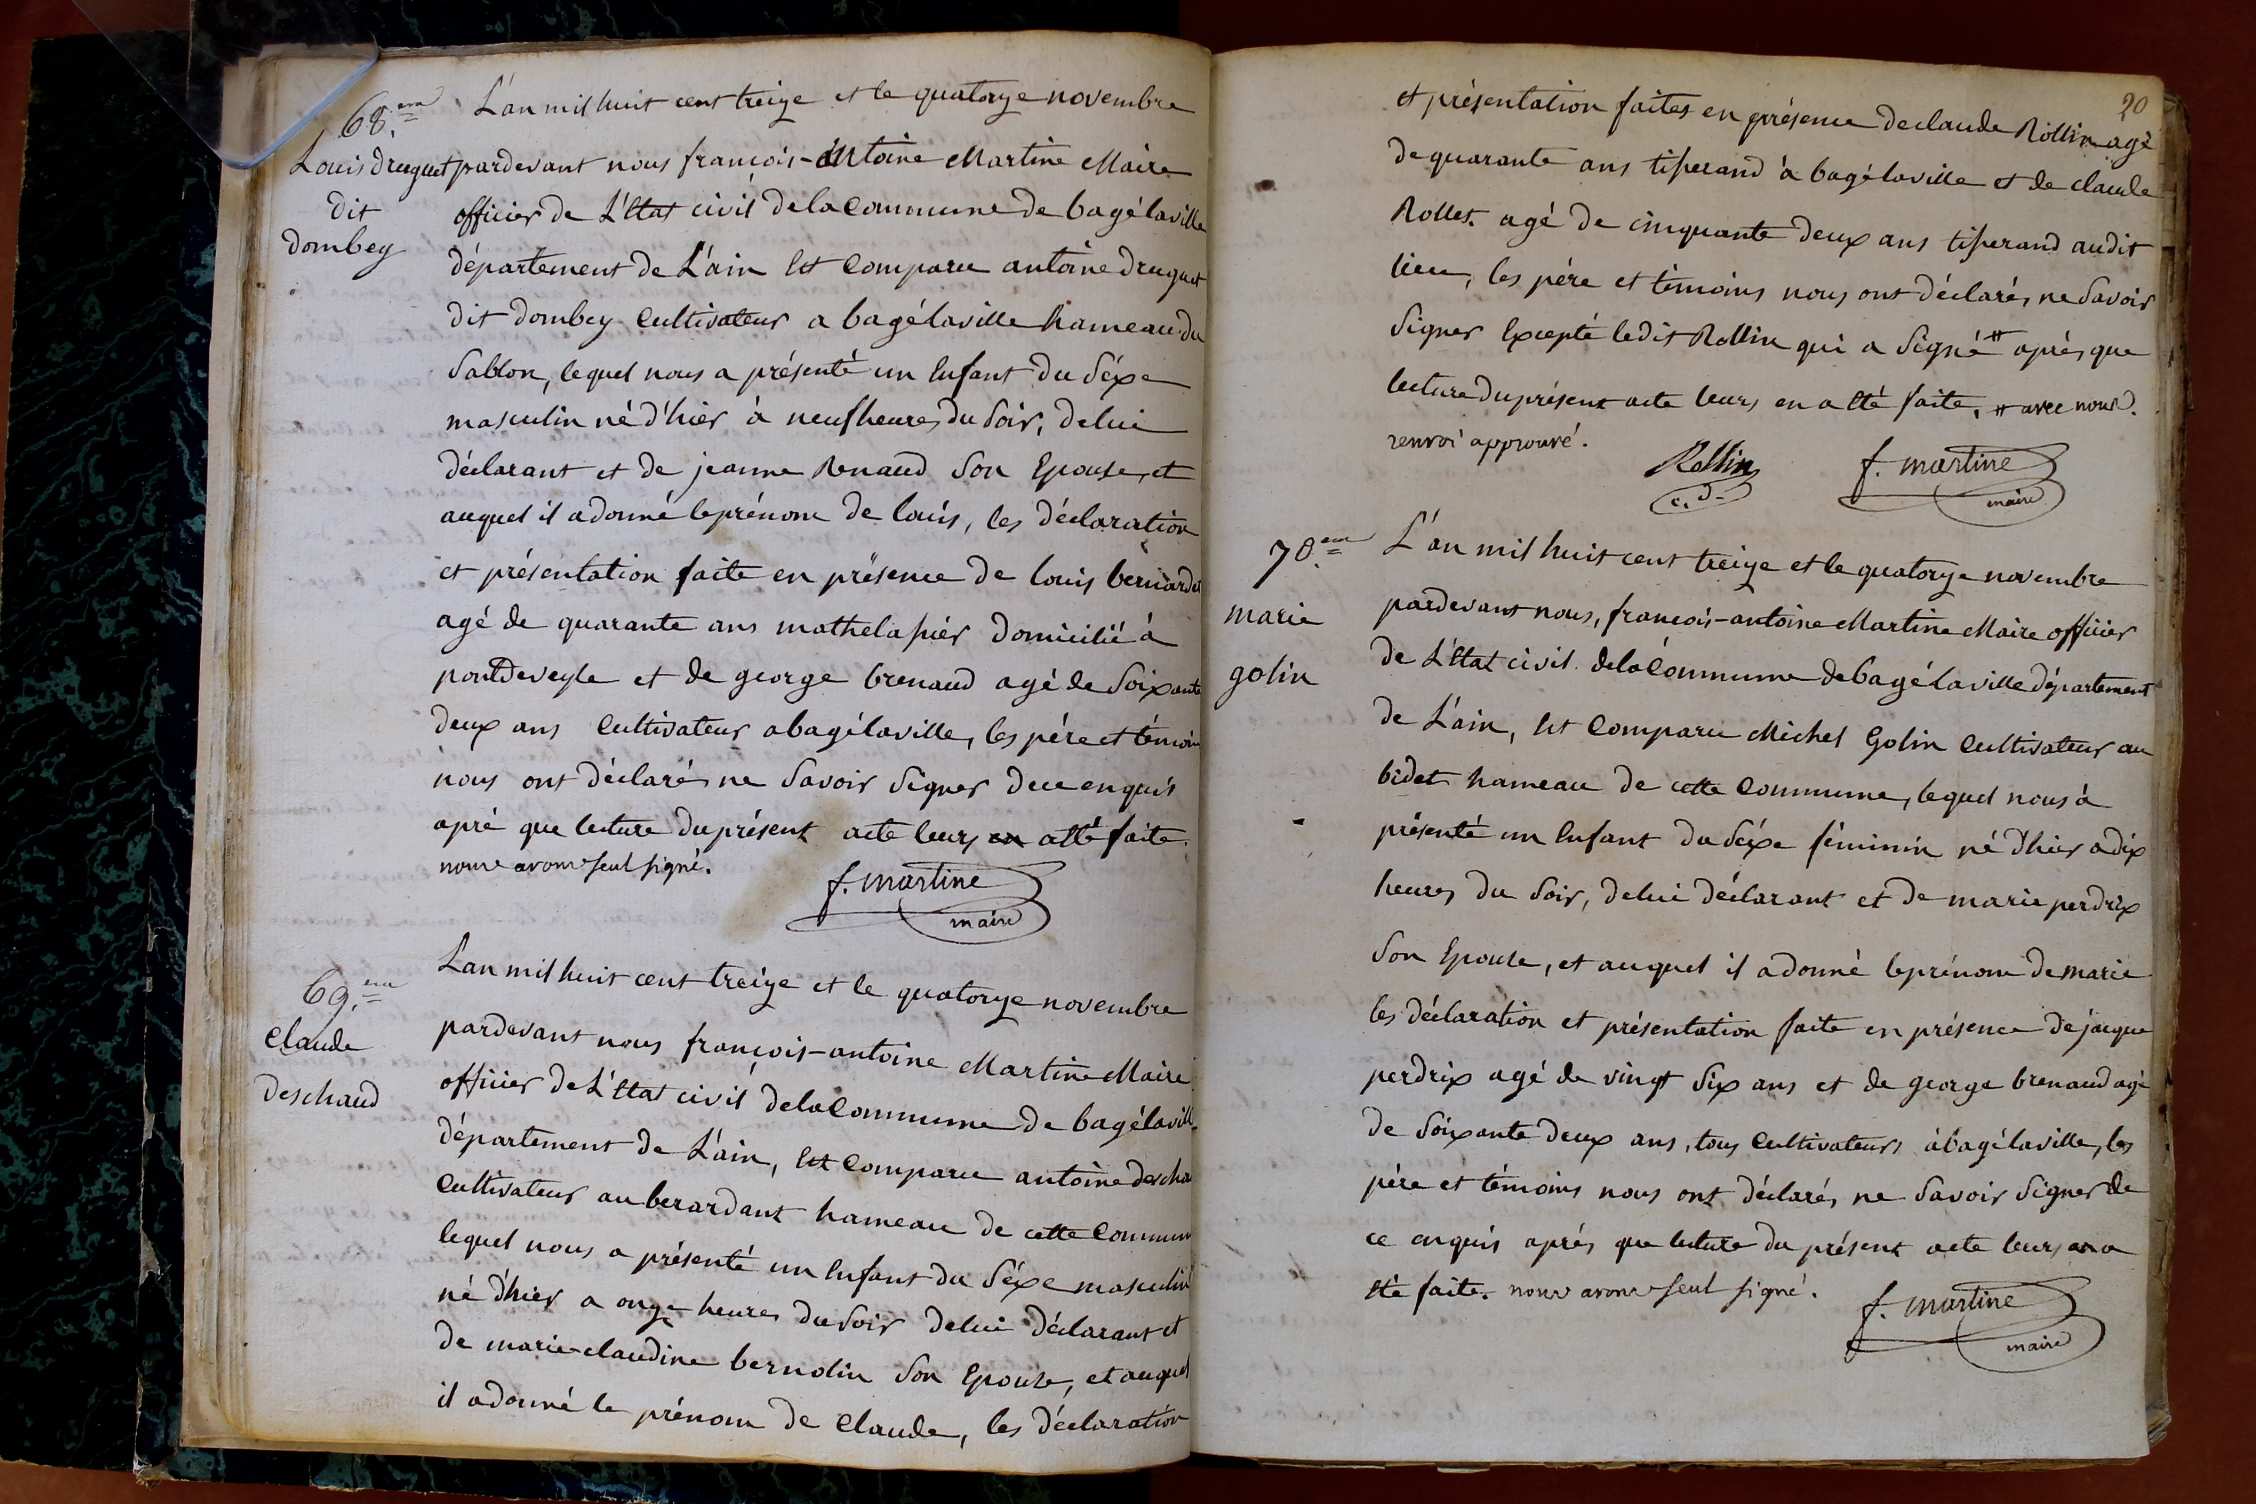 68.em
Louis druguet
dit
dombey
L'an mil huit cent treize et le quatorze novembre
pardevant nous françois-antoine Martine Maire
officier de L'Etat civil de la Commune de bagélaville
département de L'ain Est Comparu antoine druguet
dit dombey Cultivateur a bagélaville hameau du
Sablon, lequel nous a présenté un Enfant du Séxe
masculin né d'hier à neuf heures du Soir, de lui
déclarant et de jeanne Renaud Son Epouse, et
auquel il a donné le prénom de louis, les déclaration
et présentation faite en présence de louis bernardet
agé de quarante ans mathelassier domicilié à
pontdeveyle et de george brenaud agé de Soixante
deux ans Cultivateur a bagélaville, les pére et témoin
nous ont déclarés ne Savoir Signer de ce enquis
apré que lecture du présent acte leurs en a Eté faite.
nous avons seul signé.
f. martine
maire
69.em
Claude
deschaud
L'an mil huit cent treize et le quatorze novembre
pardevant nous françois-antoine Martine Maire
officier de L'Etat civil de la Commune de bagélaville
département de L'ain, Est Comparu antoine descha
Cultivateur au berardant hameau de cette Commun
lequel nous a présenté un Enfant du Séxe masculin
né d'hier a onze heures du Soir de lui déclarant et
de marie-claudine bernolin Son Epouse, et auquel
il a donné le prénom de Claude, les déclaration
20
et présentation faites en présence de claude Rollin agé
de quarante ans tisserand à bagélaville et de claude
Rollet. agé de cinquante deux ans tisserand audit
lieu, les pére et témoins nous ont déclarés ne Savoir
Signer Excepté ledit Rollin qui a Signé # aprés que
lecture du présent acte leurs en a Eté faite, # avec nous.
renvoi approuvé.
Rollin
f. martine
maire
70.em
marie
golin
L'an mil huit cent treize et le quatorze novembre
pardevant nous, françois-antoine Martine Maire officier
de L'Etat civil de la Commune de bagélaville département
de L'ain, Est Comparu Michel Golin Cultivateur au
bidet hameau de cette Commune, lequel nous à
présenté un Enfant du Séxe féminin né d'hier a dix
heures du Soir, de lui déclarant et de marie perdrix
Son Epouse, et auquel il a donné le prénom de marie
les déclaration et présentation faite en présence de jacque
perdrix agé de vingt Six ans et de george brenaud agé
de Soixante deux ans, tous Cultivateurs à bagélaville, les
pére et témoins nous ont déclarés ne Savoir Signer de
ce enquis aprés que lecture du présent acte leurs en a
Eté faite. nous avons seul signé.
f. martine
maire